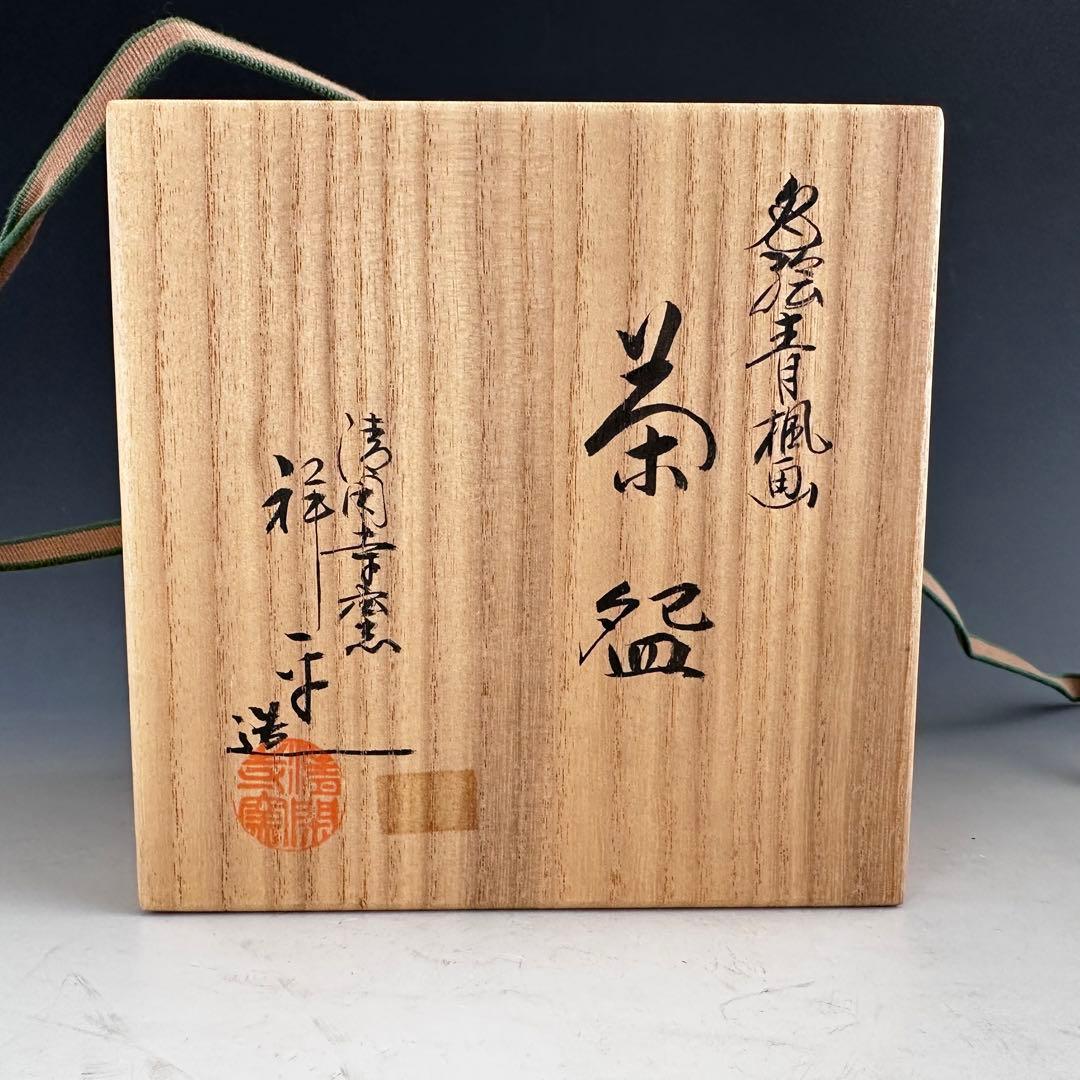 色絵青楓画
茶盌
清閑寺窯
祥平
造
清閑寺窯